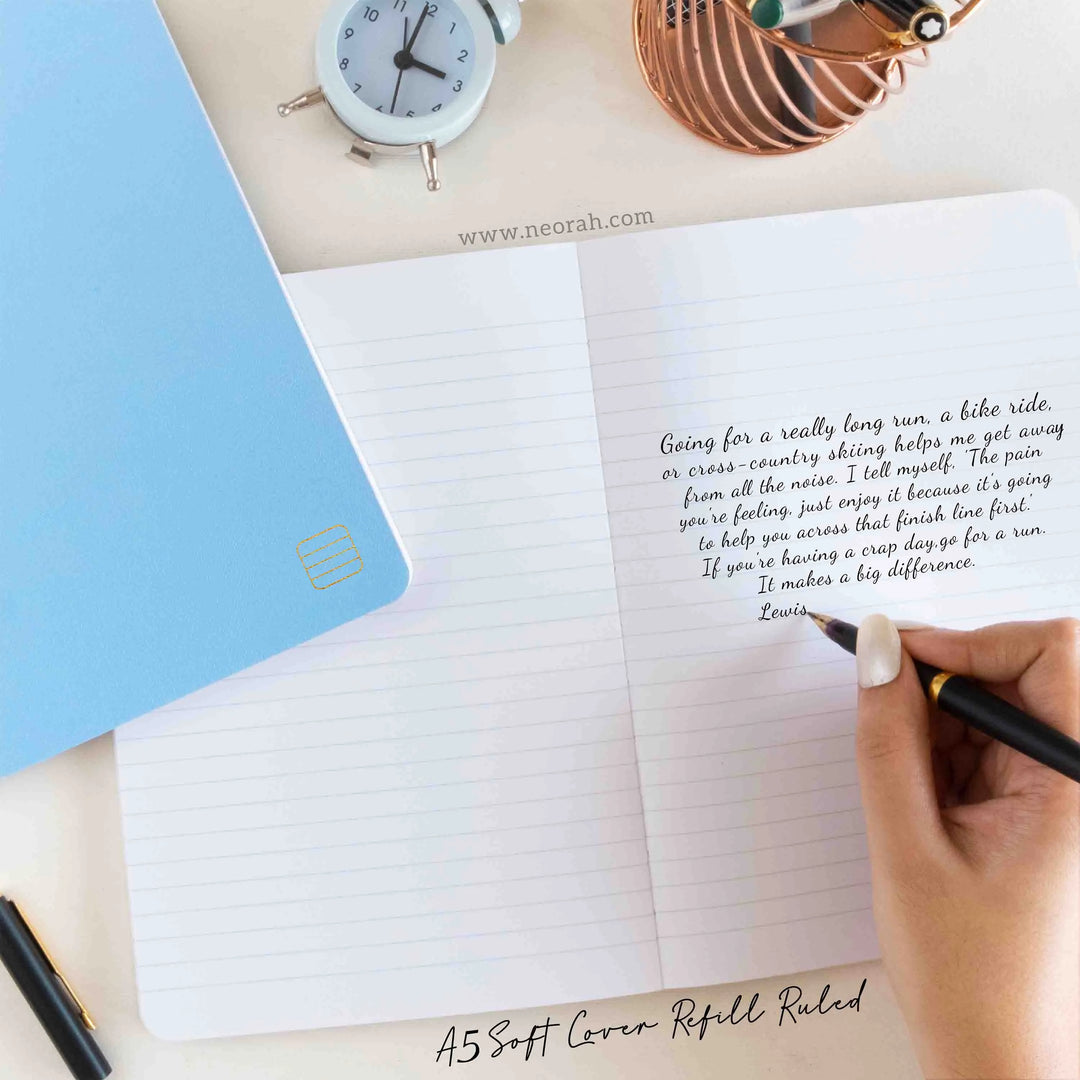 10 11 12 1
9 2
8 3
7 6 5 4
www.neorah.com
Going for a really long run, a bike ride,
or cross-country skiing helps me get away
from all the noise. I tell myself, 'The pain
you're feeling, just enjoy it because it's going
to help you across that finish line first.'
If you're having a crap day,go for a run.
It makes a big difference.
Lewis
A5 Soft Cover Refill Ruled